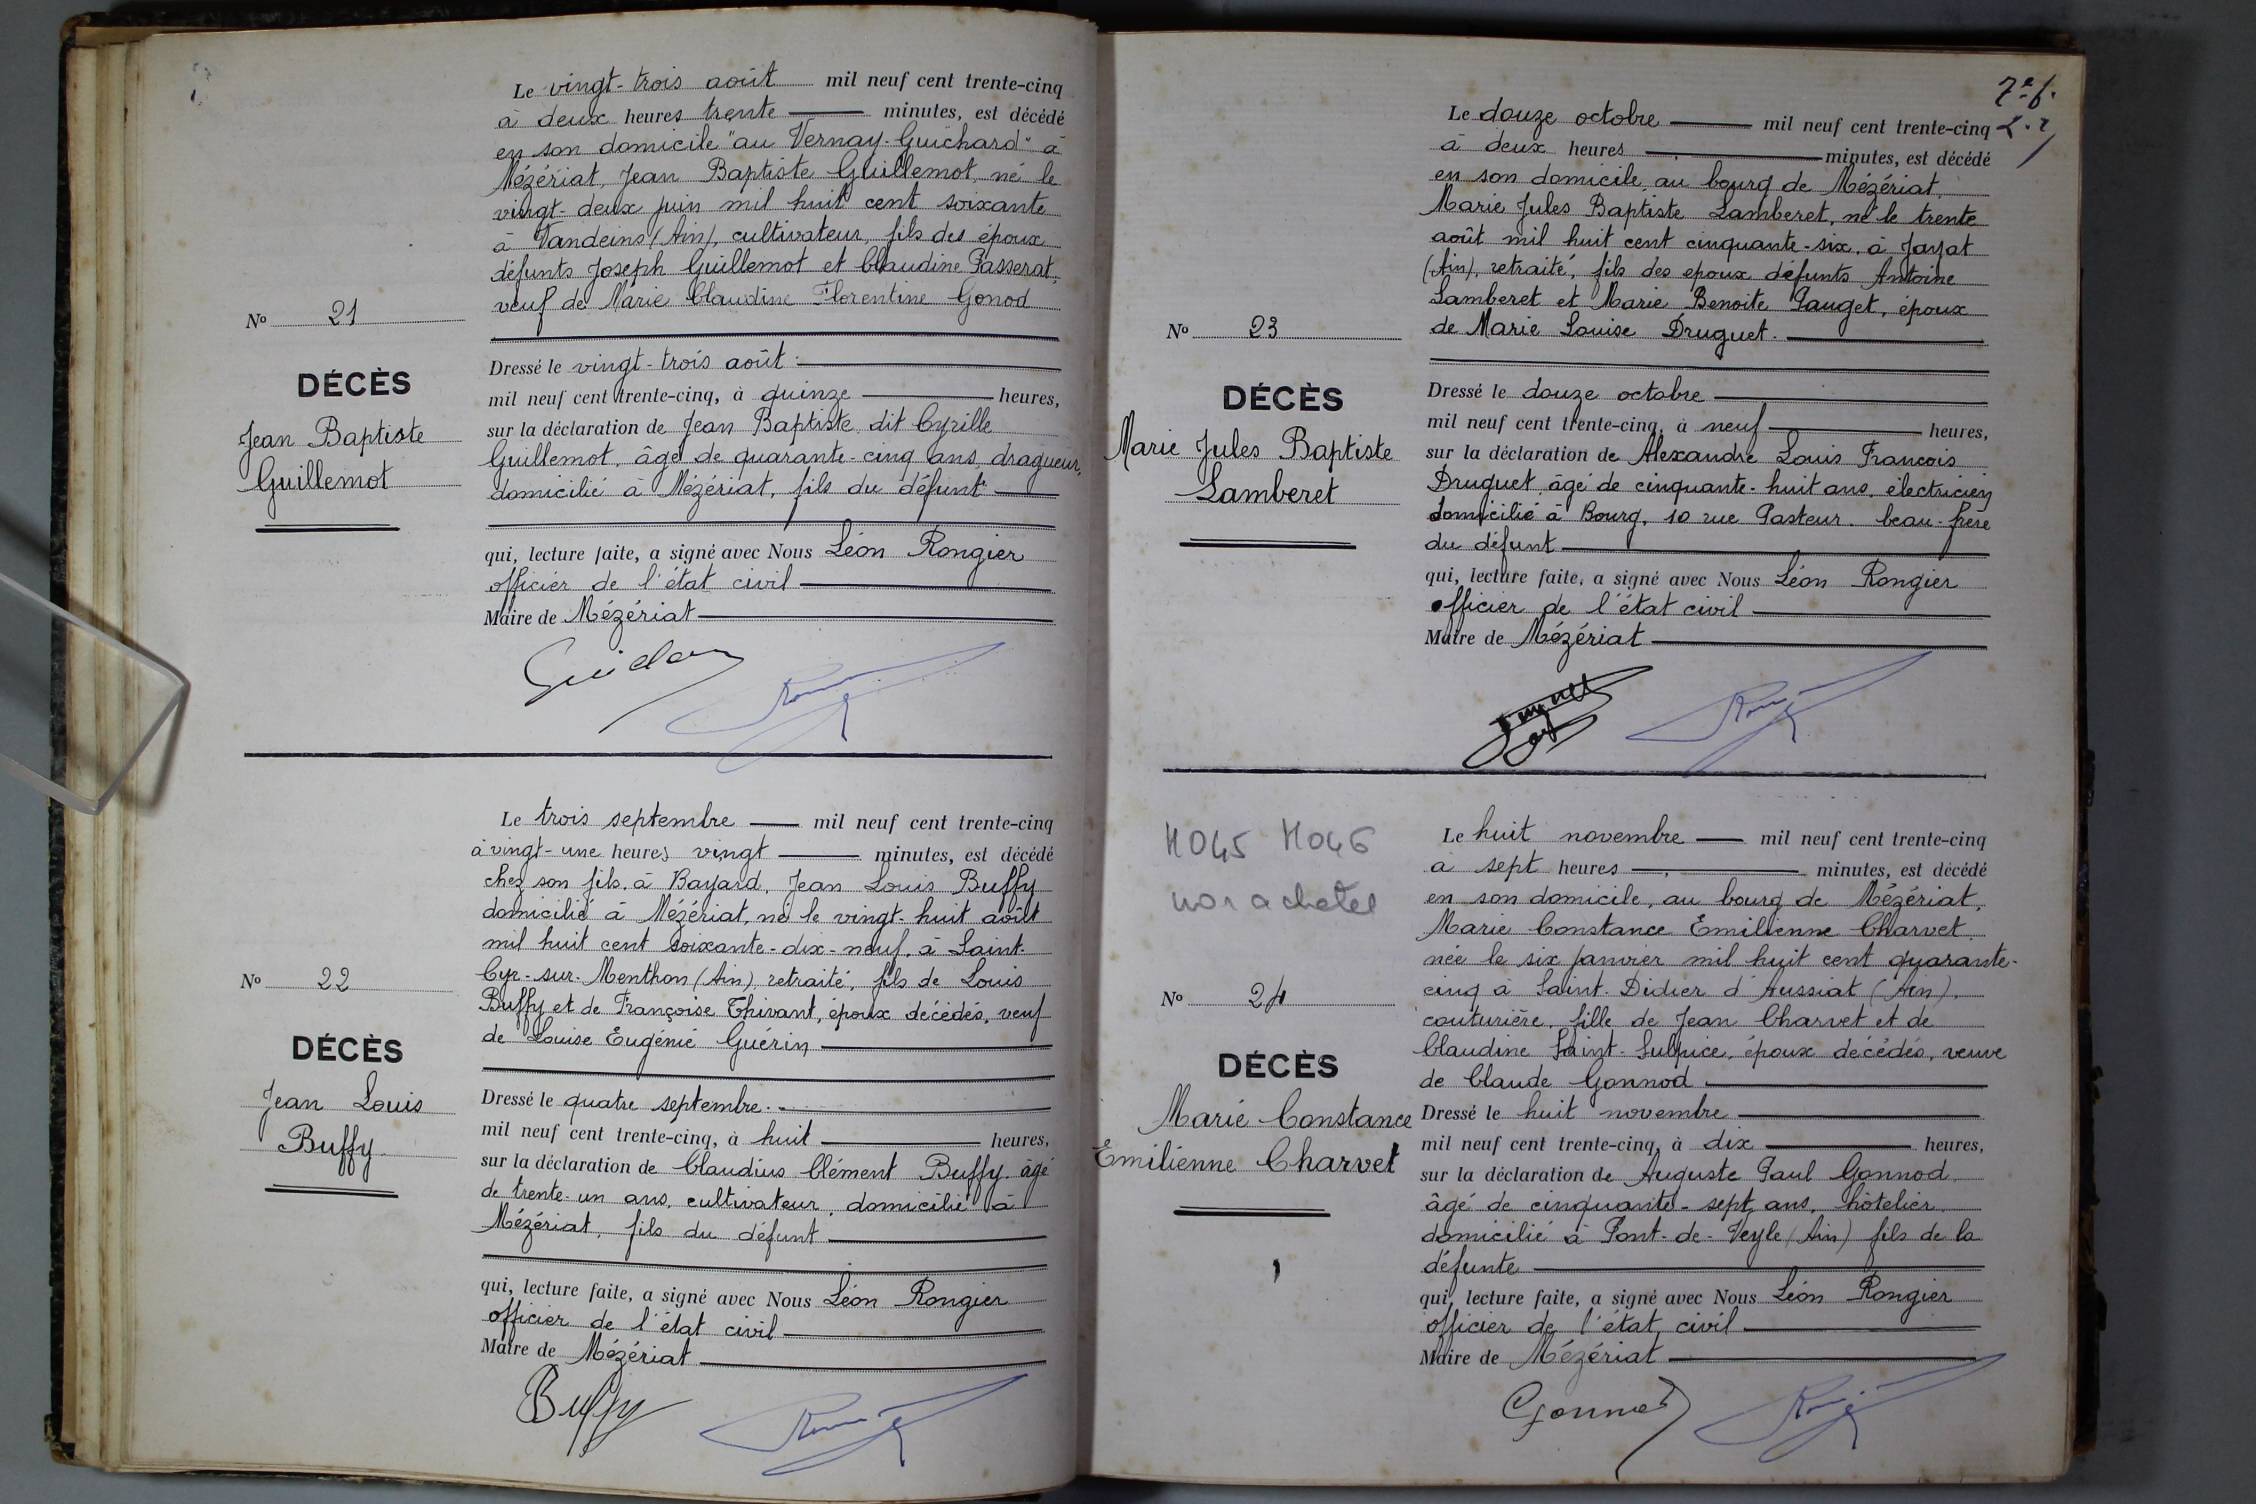 Le vingt-trois août mil neuf cent trente-cinq
à deux heures trente minutes, est décédé
en son domicile "au Vernay-Guichard" à
Mézériat, Jean Baptiste Guillemot, né le
vingt-deux juin mil huit cent soixante
à Vandeins (Ain), cultivateur, fils des époux
défunts Joseph Guillemot et Claudine Passerat,
veuf de Marie Claudine Florentine Gonod
No 21
DÉCÈS
Jean Baptiste
Guillemot
Dressé le vingt-trois août
mil neuf cent trente-cinq, à quinze heures,
sur la déclaration de Jean Baptiste dit Cyrille
Guillemot, âgé de quarante-cinq ans, dragueur,
domicilié à Mézériat, fils du défunt
qui, lecture faite, a signé avec Nous Léon Rongier
officier de l'état civil
Maire de Mézériat
Le trois septembre mil neuf cent trente-cinq
à vingt-une heures vingt minutes, est décédé
chez son fils, à Bayard, Jean Louis Buffy
domicilié à Mézériat, né le vingt-huit août
mil huit cent soixante-dix-neuf, à Saint-
Cyr-sur-Menthon (Ain), retraité, fils de Louis
Buffy et de Françoise Thivant, époux décédés, veuf
de Louise Eugénie Guérin
No 22
DÉCÈS
Jean Louis
Buffy
Dressé le quatre septembre
mil neuf cent trente-cinq, à huit heures,
sur la déclaration de Claudius Clément Buffy, âgé
de trente-un ans, cultivateur, domicilié à
Mézériat, fils du défunt
qui, lecture faite, a signé avec Nous Léon Rongier
officier de l'état civil
Maire de Mézériat
Buffy
Le douze octobre mil neuf cent trente-cinq
à deux heures minutes, est décédé
en son domicile, au bourg de Mézériat,
Marie Jules Baptiste Lamberet, né le trente
août mil huit cent cinquante-six, à Jayat
(Ain), retraité, fils des époux défunts Antoine
Lamberet et Marie Benoite Pauget, époux
de Marie Louise Druguet.
No 23
DÉCÈS
Marie Jules Baptiste
Lamberet
Dressé le douze octobre
mil neuf cent trente-cinq, à neuf heures,
sur la déclaration de Alexandre Louis François
Druguet, âgé de cinquante-huit ans, électricien
domicilié à Bourg, 10 rue Pasteur, beau-frère
du défunt
qui, lecture faite, a signé avec Nous Léon Rongier
officier de l'état civil
Maire de Mézériat
Le huit novembre mil neuf cent trente-cinq
à sept heures minutes, est décédé
en son domicile, au bourg de Mézériat,
Marie Constance Emilienne Charvet,
née le six janvier mil huit cent quarante-
cinq à Saint-Didier d'Aussiat (Ain),
couturière, fille de Jean Charvet et de
Claudine Saint-Sulpice, époux décédés, veuve
de Claude Gonnod
No 24
DÉCÈS
Marie Constance
Emilienne Charvet
Dressé le huit novembre
mil neuf cent trente-cinq, à dix heures,
sur la déclaration de Auguste Paul Gonnod,
âgé de cinquante-sept ans, hôtelier,
domicilié à Pont-de-Veyle (Ain) fils de la
défunte
qui, lecture faite, a signé avec Nous Léon Rongier
officier de l'état civil
Maire de Mézériat
Gonnod